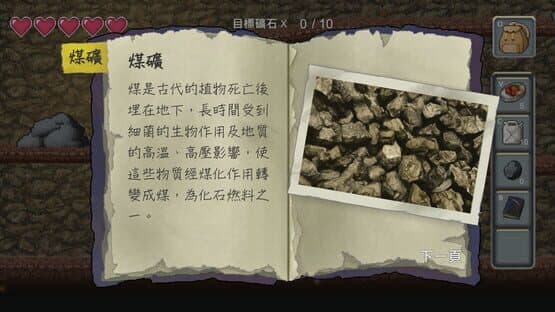 目標礦石X 0/10
煤礦
煤礦
煤是古代的植物死亡後
埋在地下，長時間受到
細菌的生物作用及地質
的高溫、高壓影響，使
這些物質經煤化作用轉
變成煤，為化石燃料之
一。
下一頁
0
5
10
0